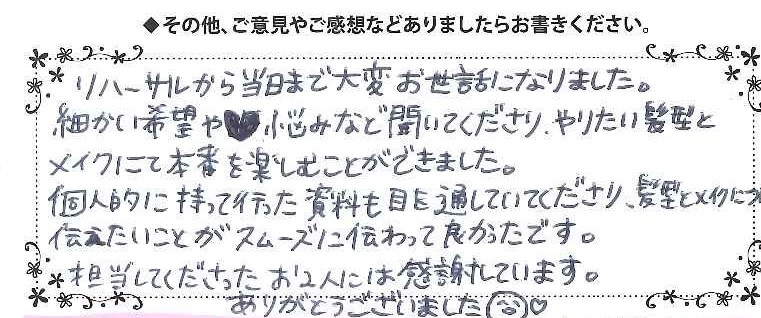 ◆その他、ご意見やご感想などありましたらお書きください。
リハーサルから当日まで大変お世話になりました。
細かい希望や♥悩みなど聞いてくださり、やりたい髪型と
メイクにて本番を楽しむことができました。
個人的に持って行った資料も目を通していてくださり、髪型とメイクにつ
伝えたいことがスムーズに伝わって良かったです。
担当してくださったお2人には感謝しています。
ありがとうございました☺♡